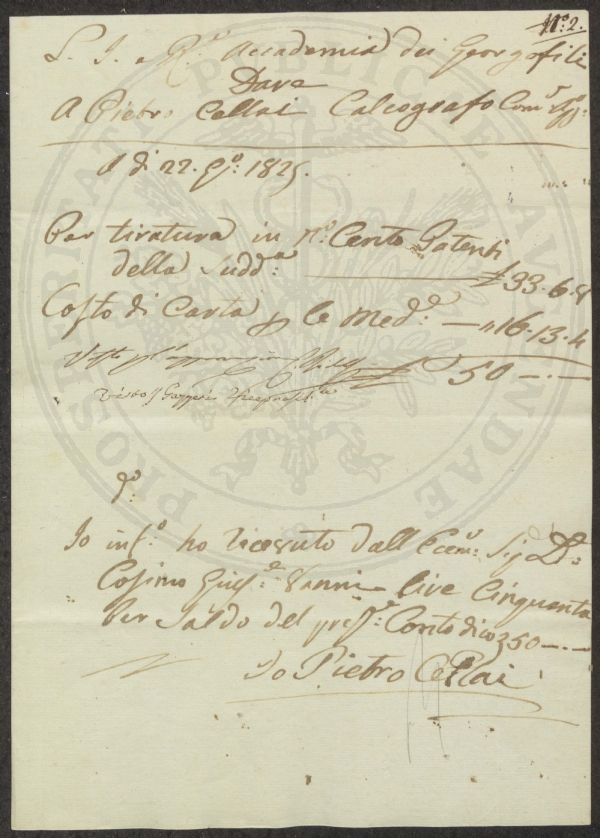 N.º 2.
L. I. e R.ᵉ Accademia dei Georgofili
Dare
A Pietro Cellai Calcografo Com.ʳ
A di 22. G.º 1825.
Per tiratura in N.º Cento Patenti
della Sudd.ª £ 33.6.8
Costo di Carta p le Med.ᵉ — " 16.13.4
£ 50 —.—
Visto G Gazzeri
Io inf.º ho ricevuto dall Ecem.º Sig D.
Cosimo Gius.ᵉ Vanni lire Cinquanta
per Saldo del pres.ᵉ Conto dico £ 50 —.—
Io Pietro Cellai
PROSPERITATI PUBLICAE AUGENDAE